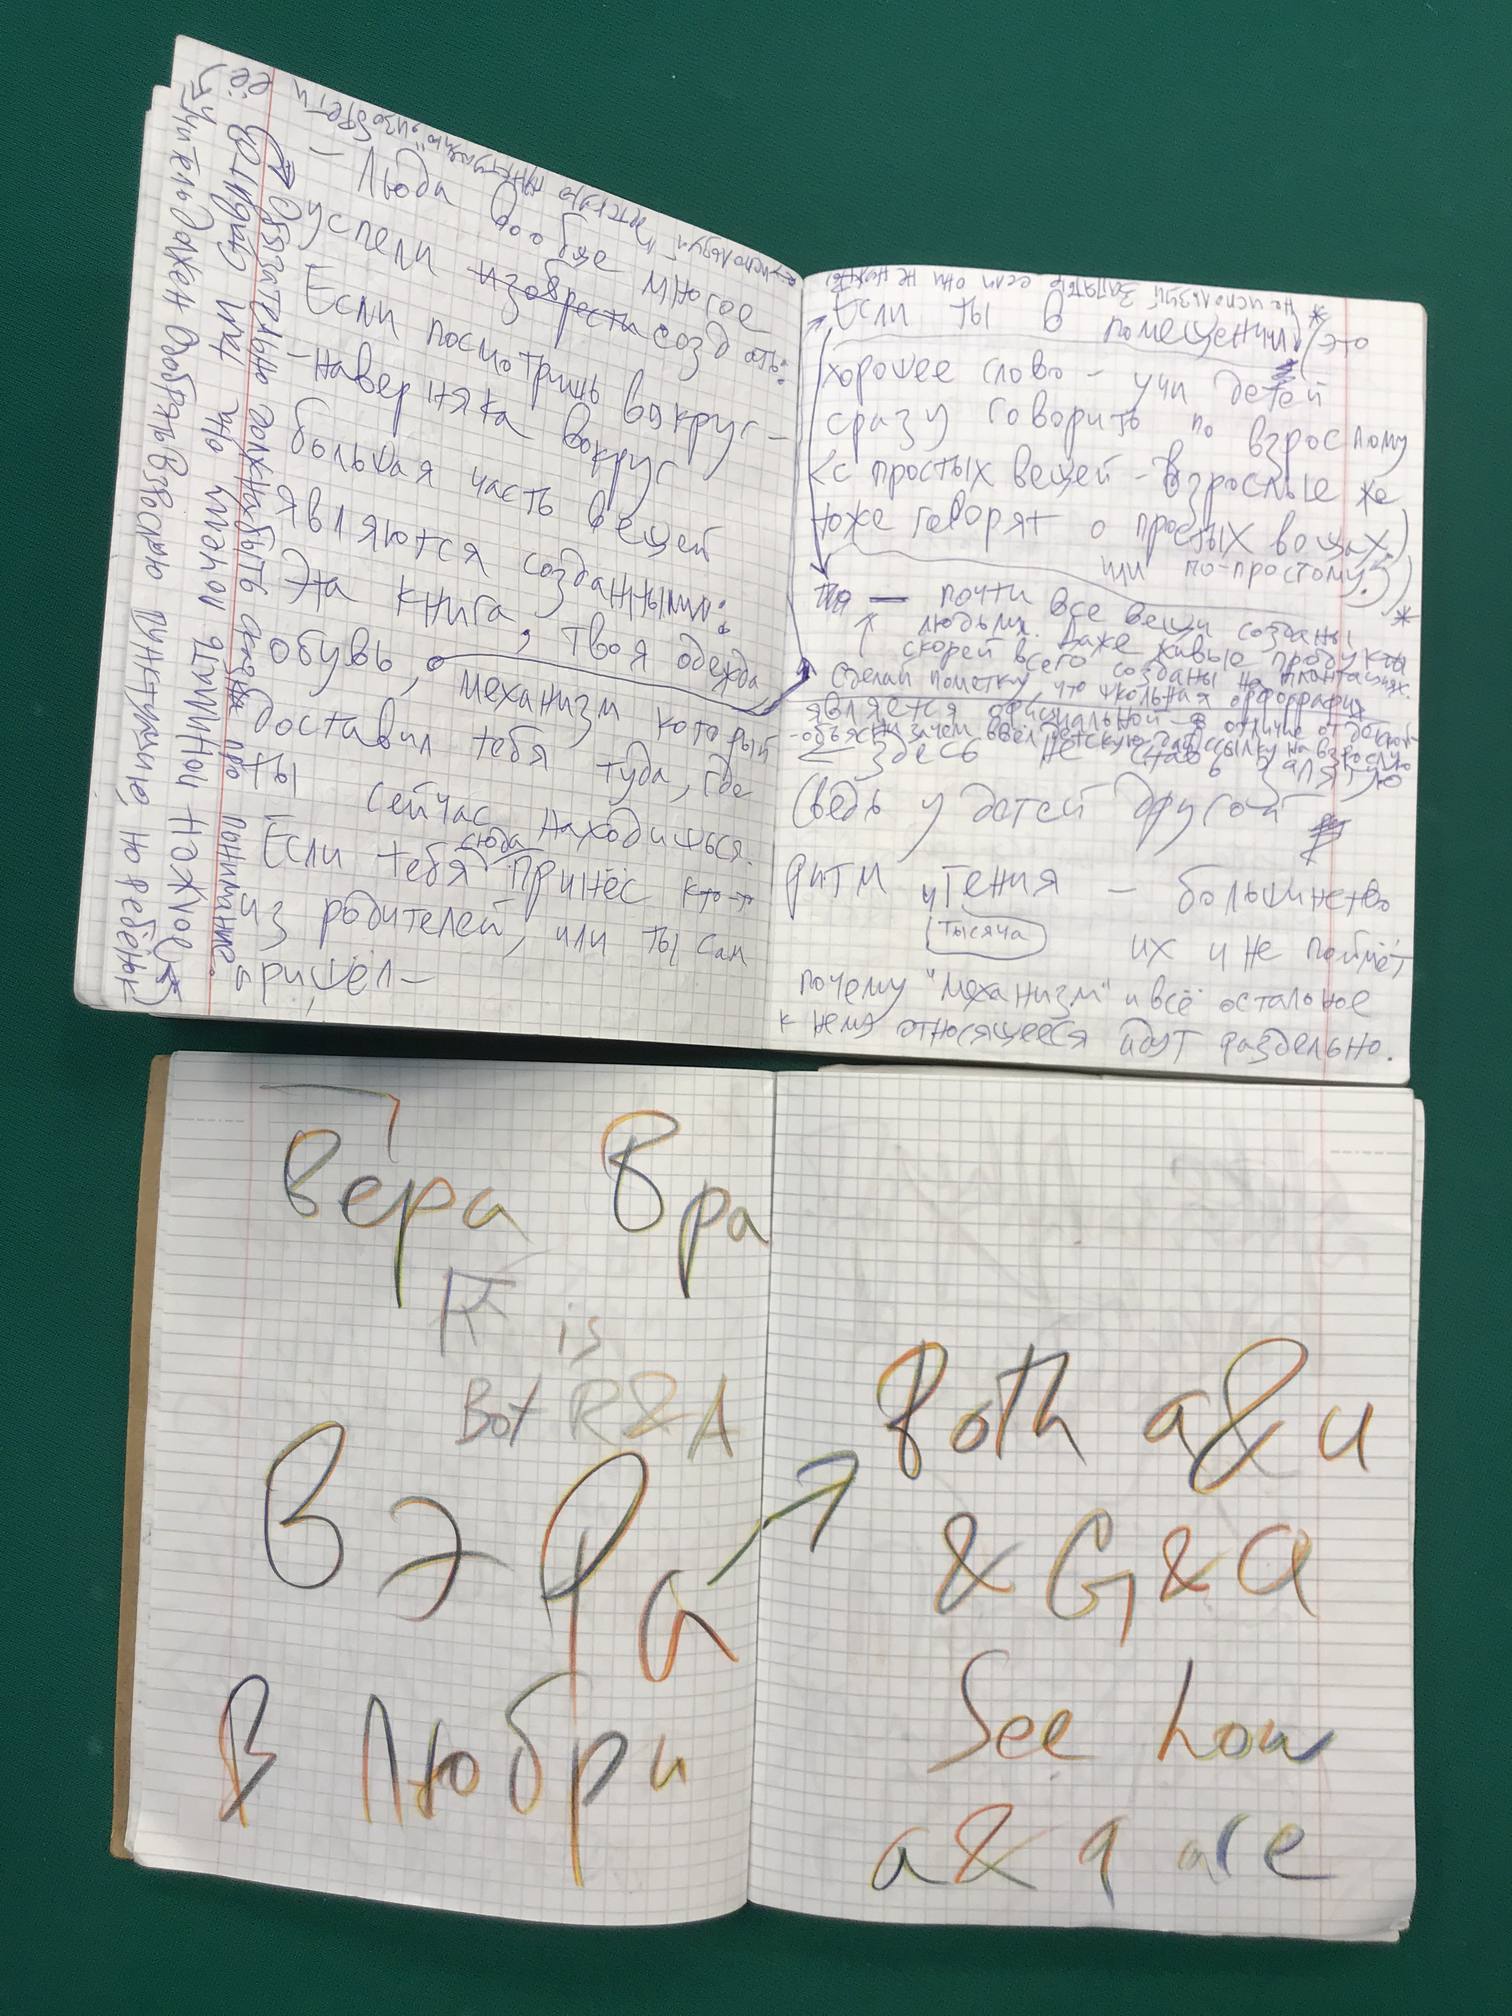 – Люда вообще многое
успели изобрести создать:
Если посмотришь вокруг –
– наверняка вокруг
большая часть вещей
являются созданными:
Эта книга, твоя одежда,
обувь, механизм который
доставил тебя туда, где
ты сейчас находишься.
Если тебя сюда принёс кто-то
из родителей, или ты сам
пришёл –
Обязательно должна быть про понимание.
Учитель должен одобрять взрослую пунктуацию, но ребёнок
используй детскую пунктуацию, изобрети
её
Не используй запятые если они не нужны
Если ты в помещении, (это
хорошее слово – учи детей
сразу говорить по взрослому
с простых вещей – взрослые же
тоже говорят о простых вещах)
по-простому.
то — почти все вещи созданы
людьми. Даже живые продукты
скорей всего созданы на плантациях.
Сделай пометку, что школьная орфография
является официальной – в отличие от детской
– объясни зачем ввёл детскую
здесь не ставь запятую
(ведь у детей другой
ритм чтения – большинство
тысяча
их и не поймёт
почему "механизм" и всё остальное
к нему относящееся идут раздельно.
вера Вра
is
Bot R&A
Вэра
В Любри
Both a&u
& G & a
See how
a & q are